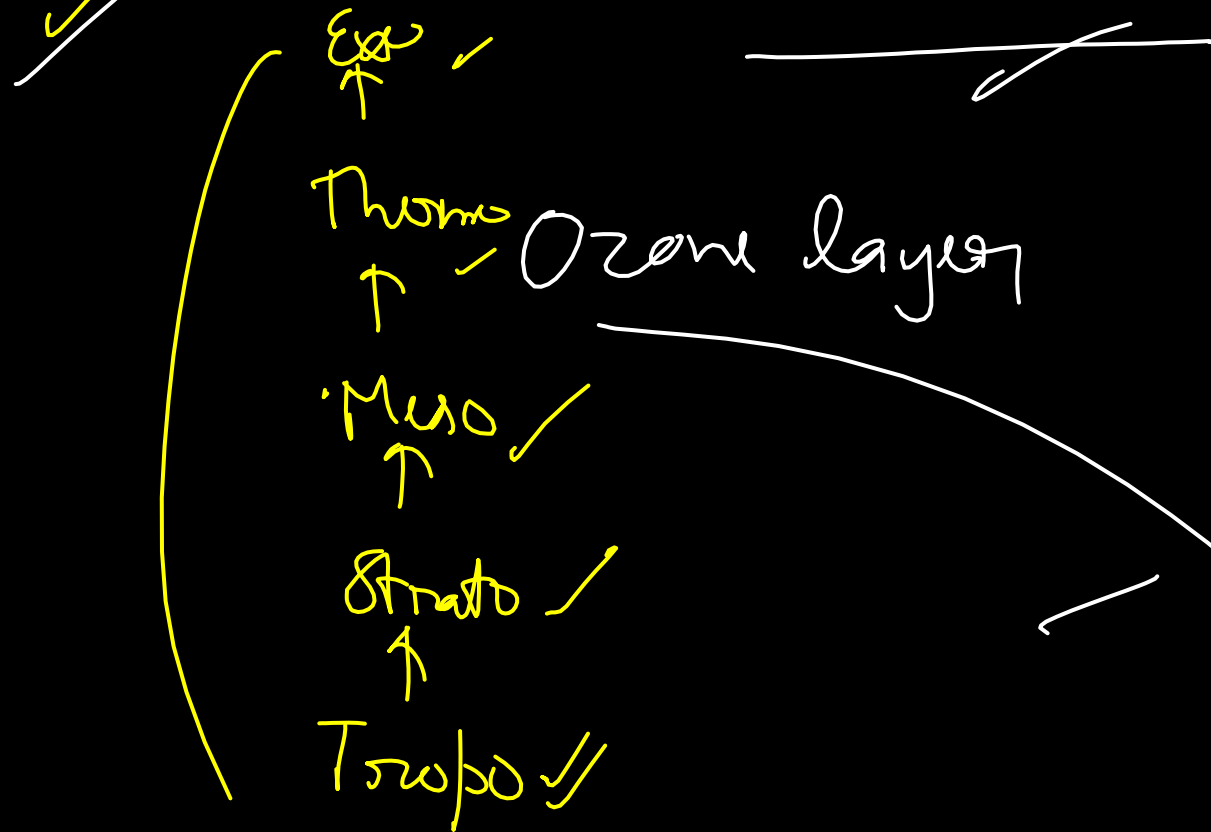 Exo
Thermo
Ozone layer
Meso
Strato
Tropo